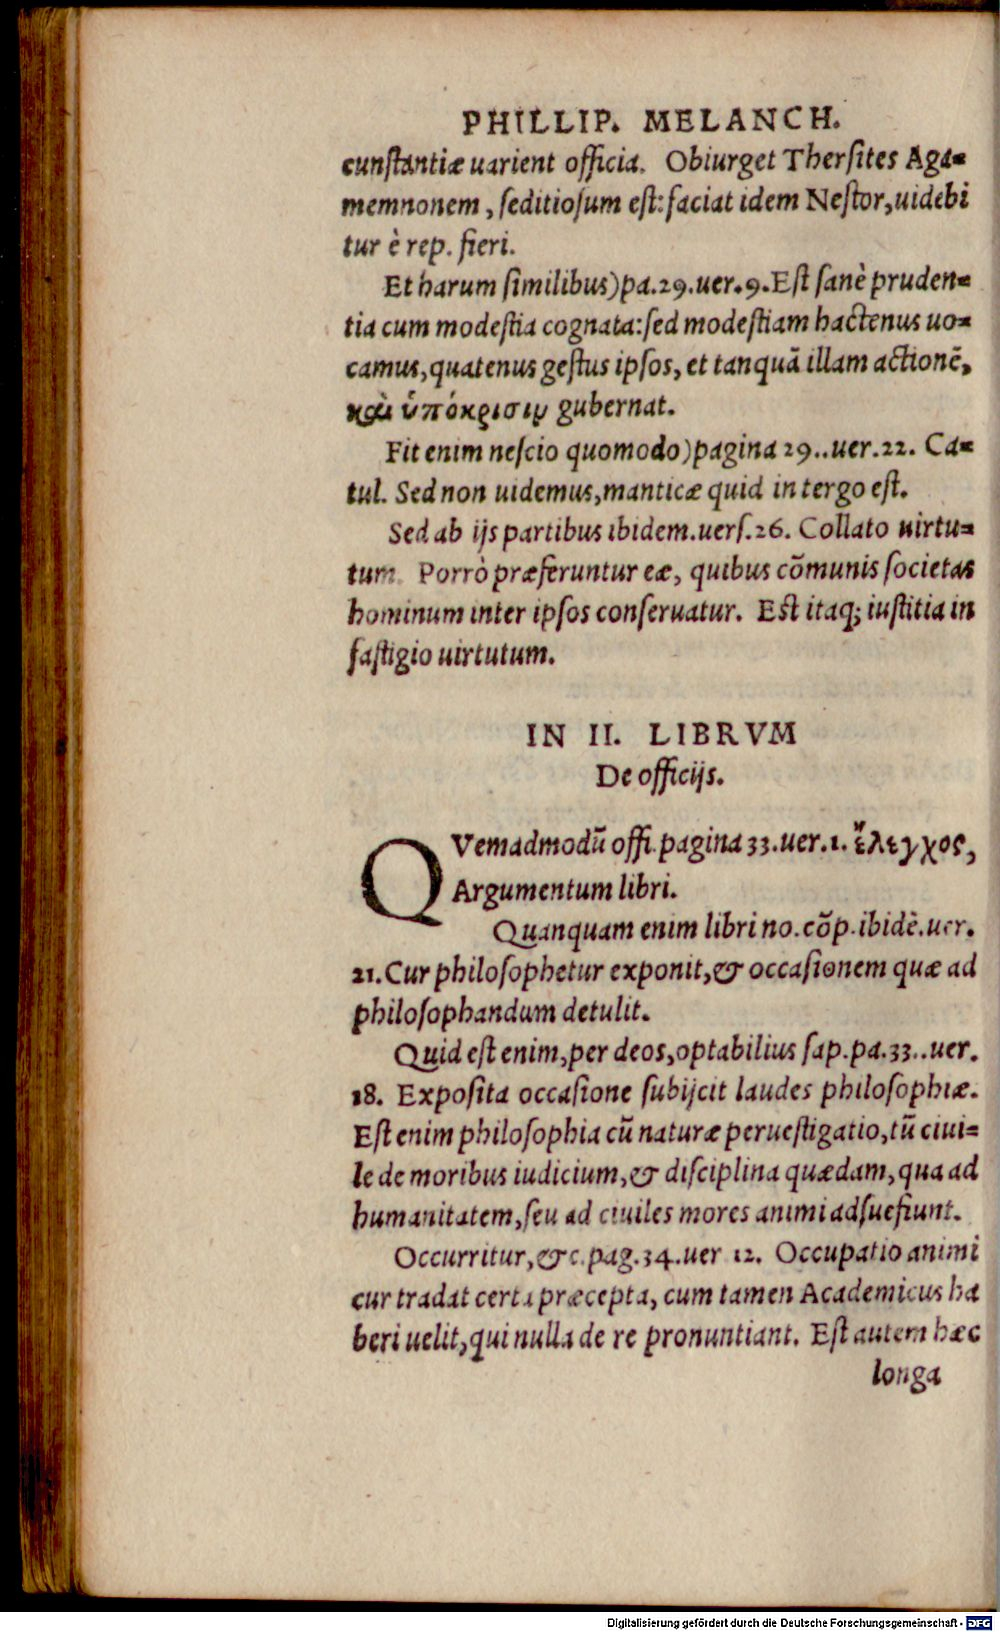 PHILLIP. MELANCH.
cunſtantiæ uarient officia. Obiurget Therſites Aga=
memnonem, ſeditioſum eſt: faciat idem Neſtor, uidebi
tur è rep. fieri.
Et harum ſimilibus) pa. 29. uer. 9. Eſt ſanè pruden=
tia cum modeſtia cognata: ſed modeſtiam hactenus uo=
camus, quatenus geſtus ipſos, et tanquā illam actionē,
καὶ ὑπόκρισιν gubernat.
Fit enim neſcio quomodo) pagina 29.. uer. 22. Ca=
tul. Sed non uidemus, manticæ quid in tergo eſt.
Sed ab ijs partibus ibidem. uerſ. 26. Collato uirtu=
tum. Porrò præferuntur eæ, quibus cōmunis ſocietas
hominum inter ipſos conſeruatur. Eſt itaq; iuſtitia in
faſtigio uirtutum.
IN II. LIBRVM
De officijs.
QVemadmodū offi. pagina 33. uer. 1. ἔλεγχος,
Argumentum libri.
Quanquam enim libri no. cōp. ibidē. uer.
21. Cur philoſophetur exponit, & occaſionem quæ ad
philoſophandum detulit.
Quid eſt enim, per deos, optabilius ſap. pa. 33.. uer.
18. Expoſita occaſione ſubijcit laudes philoſophiæ.
Eſt enim philoſophia cū naturæ perueſtigatio, tū ciui=
le de moribus iudicium, & diſciplina quædam, qua ad
humanitatem, ſeu ad ciuiles mores animi adſuefiunt.
Occurritur, &c. pag. 34. uer 12. Occupatio animi
cur tradat certa præcepta, cum tamen Academicus ha
beri uelit, qui nulla de re pronuntiant. Eſt autem hæc
longa
Digitalisierung gefördert durch die Deutsche Forschungsgemeinschaft - DFG